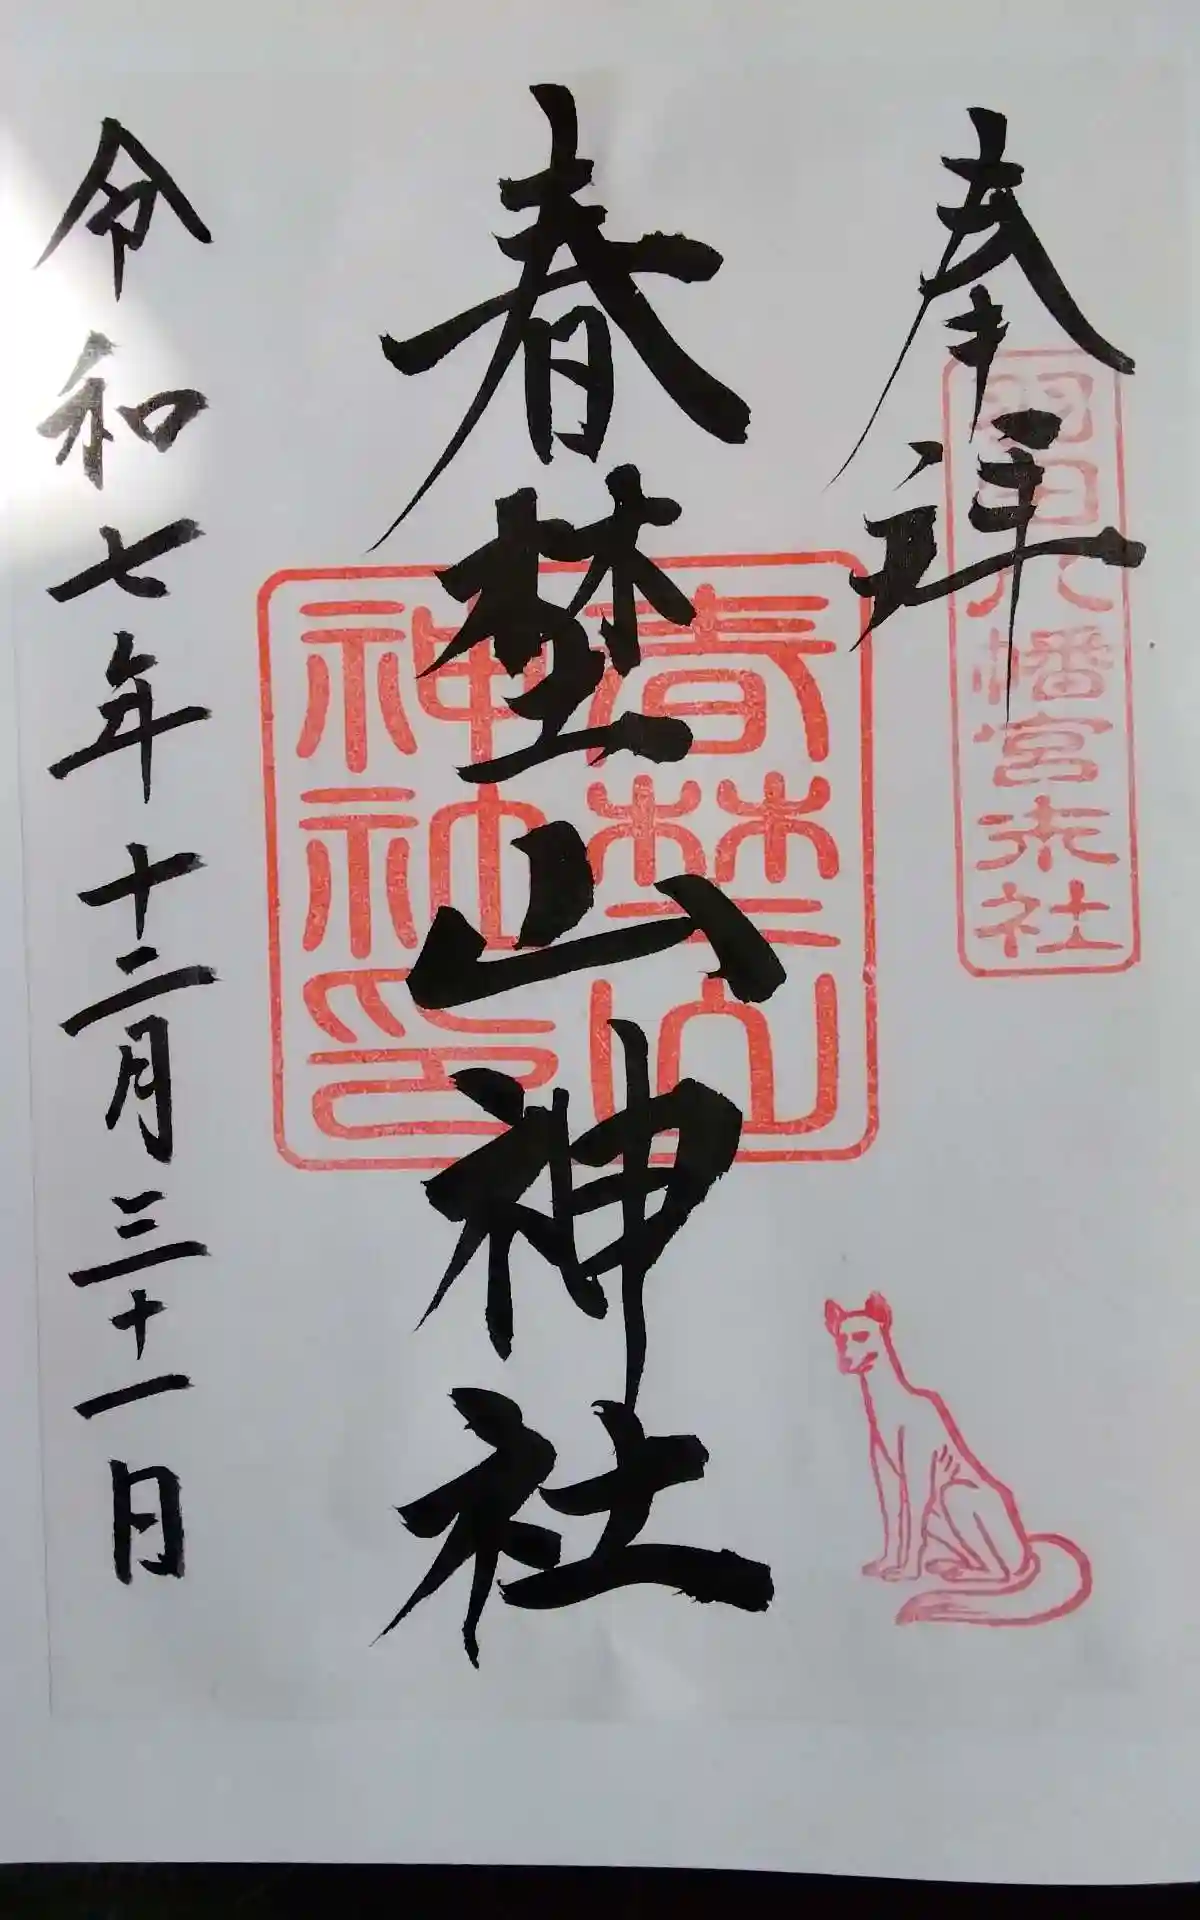 奉拝
羽田八幡宮末社
春埜山神社
春埜山
神社印
令和七年十二月三十一日